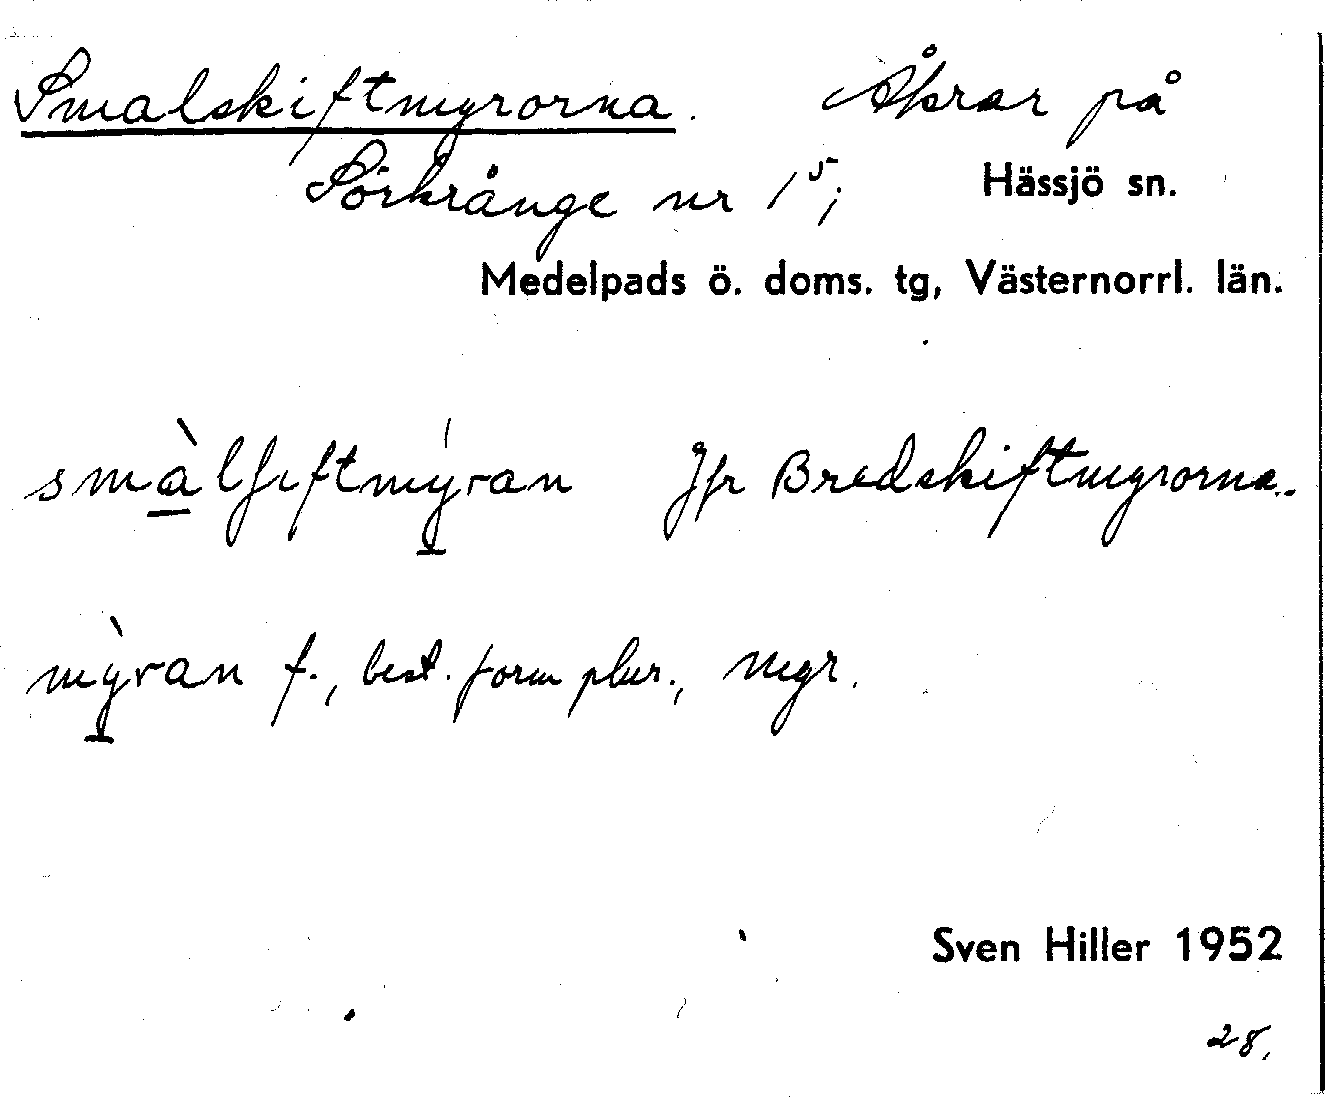 Smalskiftmyrorna. Åkrar på
Sörkrånge nr 1⁵; Hässjö sn.
Medelpads ö. doms. tg, Västernorrl. län.
smàlʃiftmýran Jfr Bredskiftmyrorna.
mỳran f., best. form plur., myr.
Sven Hiller 1952
28.